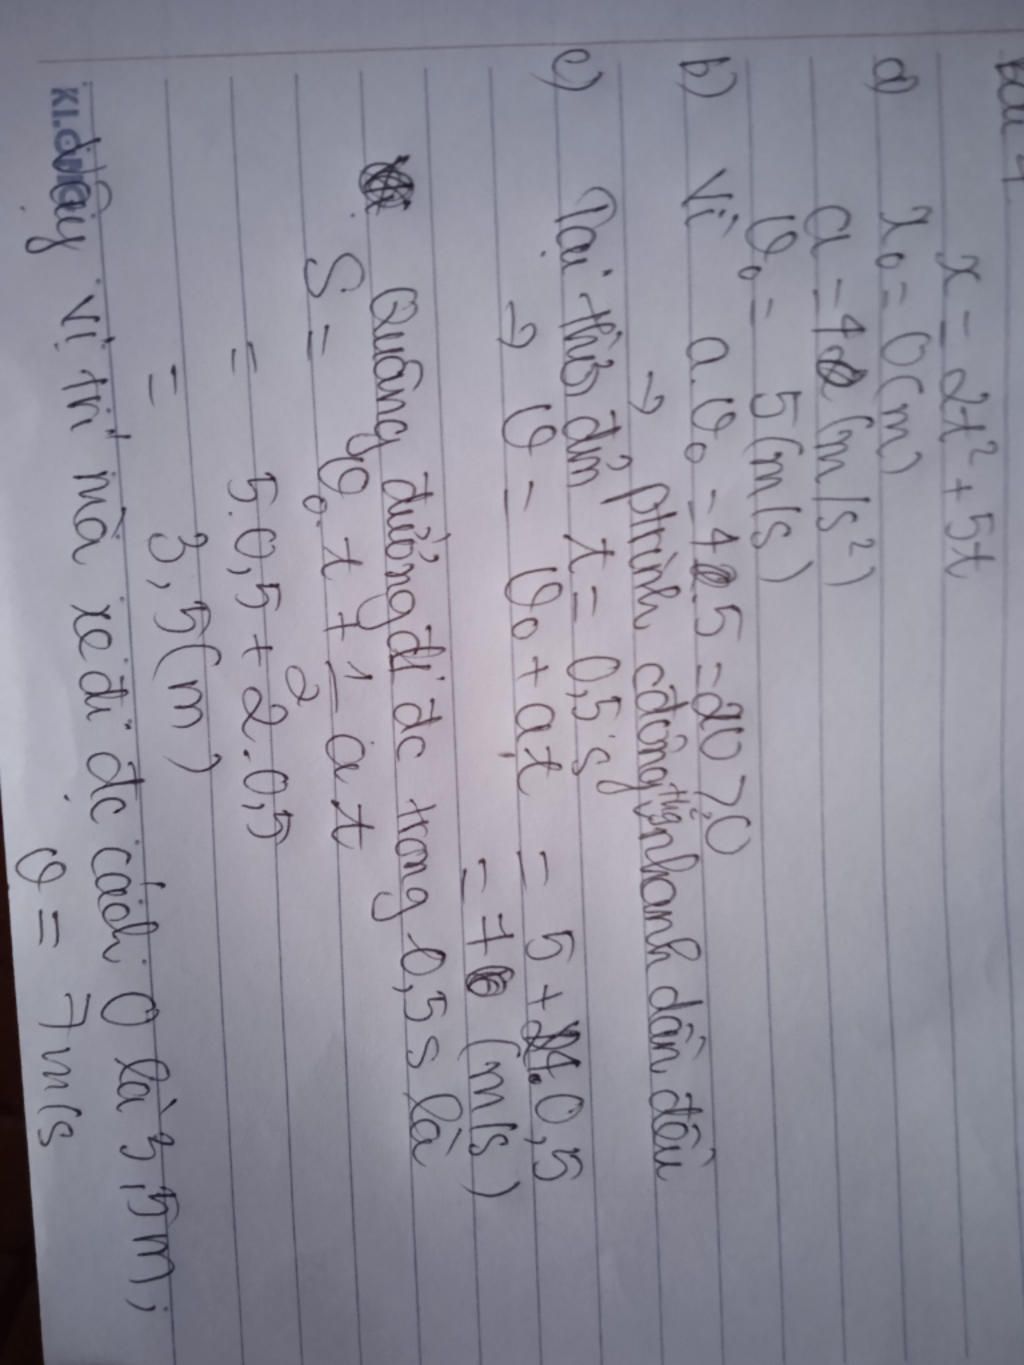 Bài 4
x = 2t² + 5t
a) x₀ = 0 (m)
a = 4 (m/s²)
v₀ = 5 (m/s)
b) Vì a.v₀ = 4.5 = 20 > 0
→ ptrình cđộng thg nhanh dần đều
c) Tại thời điểm t = 0,5 s
→ v = v₀ + at = 5 + 4.0,5
= 7 (m/s)
Quãng đường đi đc trong 0,5 s là
S = v₀.t + 1/2 at
= 5.0,5 + 2.0,5
= 3,5 (m)
vậy vị trí mà xe đi đc cách O là 3,5m;
v = 7 m/s